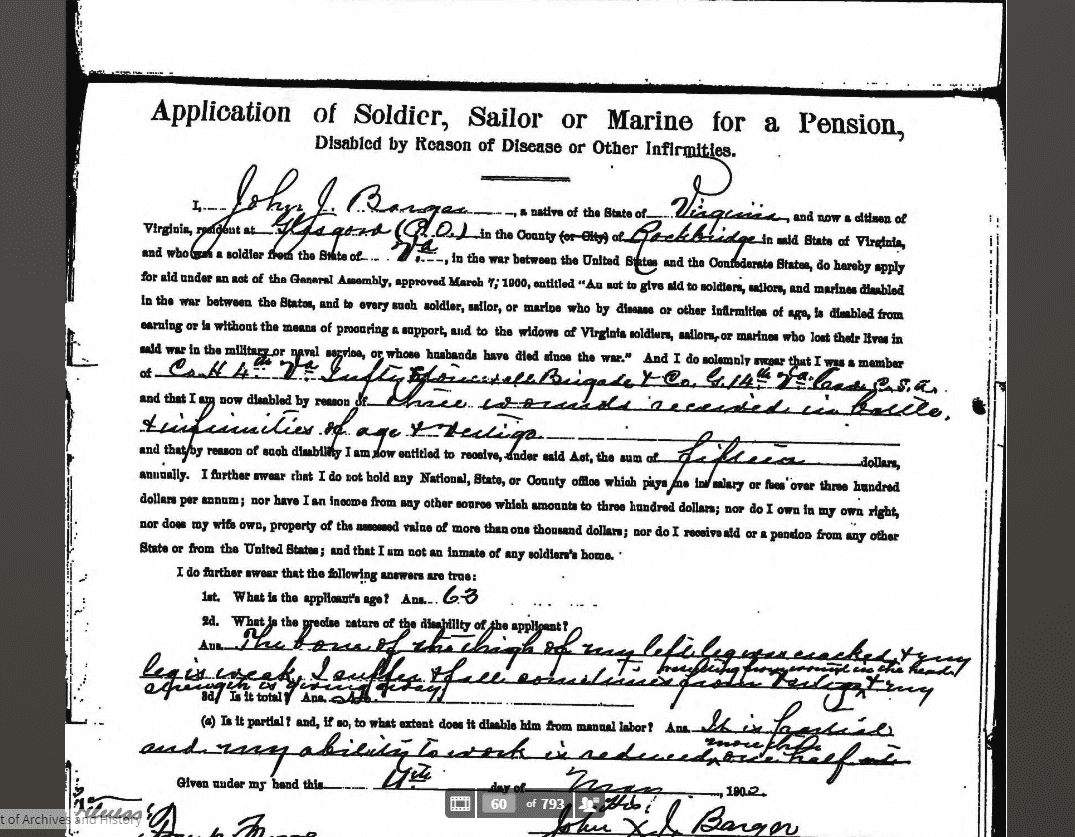 Application of Soldier, Sailor or Marine for a Pension,
Disabled by Reason of Disease or Other Infirmities.
I, John J. Barger, a native of the State of Virginia, and now a citizen of
Virginia, resident at Glasgow (P.O.) in the County (or City) of Rockbridge in said State of Virginia,
and who was a soldier from the State of Va, in the war between the United States and the Confederate States, do hereby apply
for aid under an act of the General Assembly, approved March 7, 1900, entitled "An act to give aid to soldiers, sailors, and marines disabled
in the war between the States, and to every such soldier, sailor, or marine who by disease or other infirmities of age, is disabled from
earning or is without the means of procuring a support, and to the widows of Virginia soldiers, sailors, or marines who lost their lives in
said war in the military or naval service, or whose husbands have died since the war." And I do solemnly swear that I was a member
of Co. H 4th Va Infty Stonewall Brigade & Co. G. 14th Va. Cav. C.S.A.
and that I am now disabled by reason of three wounds received in battle,
& infirmities of age & vertigo
and that by reason of such disability I am now entitled to receive, under said Act, the sum of fifteen dollars,
annually. I further swear that I do not hold any National, State, or County office which pays me in salary or fees over three hundred
dollars per annum; nor have I an income from any other source which amounts to three hundred dollars; nor do I own in my own right,
nor does my wife own, property of the assessed value of more than one thousand dollars; nor do I receive aid or a pension from any other
State or from the United States; and that I am not an inmate of any soldier's home.
I do further swear that the following answers are true:
1st. What is the applicant's age? Ans. 63
2d. What is the precise nature of the disability of the applicant?
Ans. The bone of the thigh of my left leg was cracked & my
resulting from wound in the head
leg is weak, I suffer & fall sometimes from vertigo & my
strength is giving away
3d. Is it total? Ans. No.
(a) Is it partial? and, if so, to what extent does it disable him from manual labor? Ans. It is partial
more than
and my ability to work is reduced one half
Given under my hand this 4th day of May, 1902.
his
John X J. Barger
60 of 793
t of Archives and History